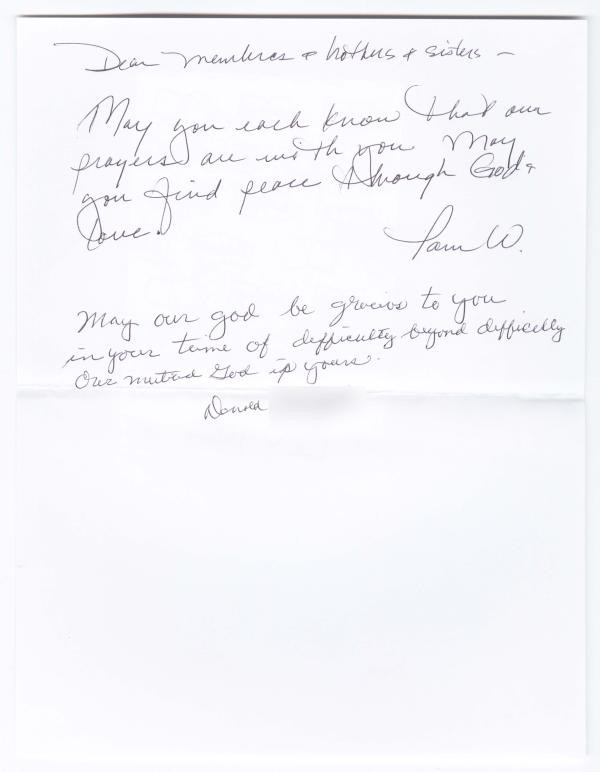 Dear Members & brothers & sisters –
May you each know that our
prayers are with you. May
you find peace through God &
love.
Pam W.
May our god be gracios to you
in your time of difficulty beyond difficelly
Our mutual God is yours.
Donald